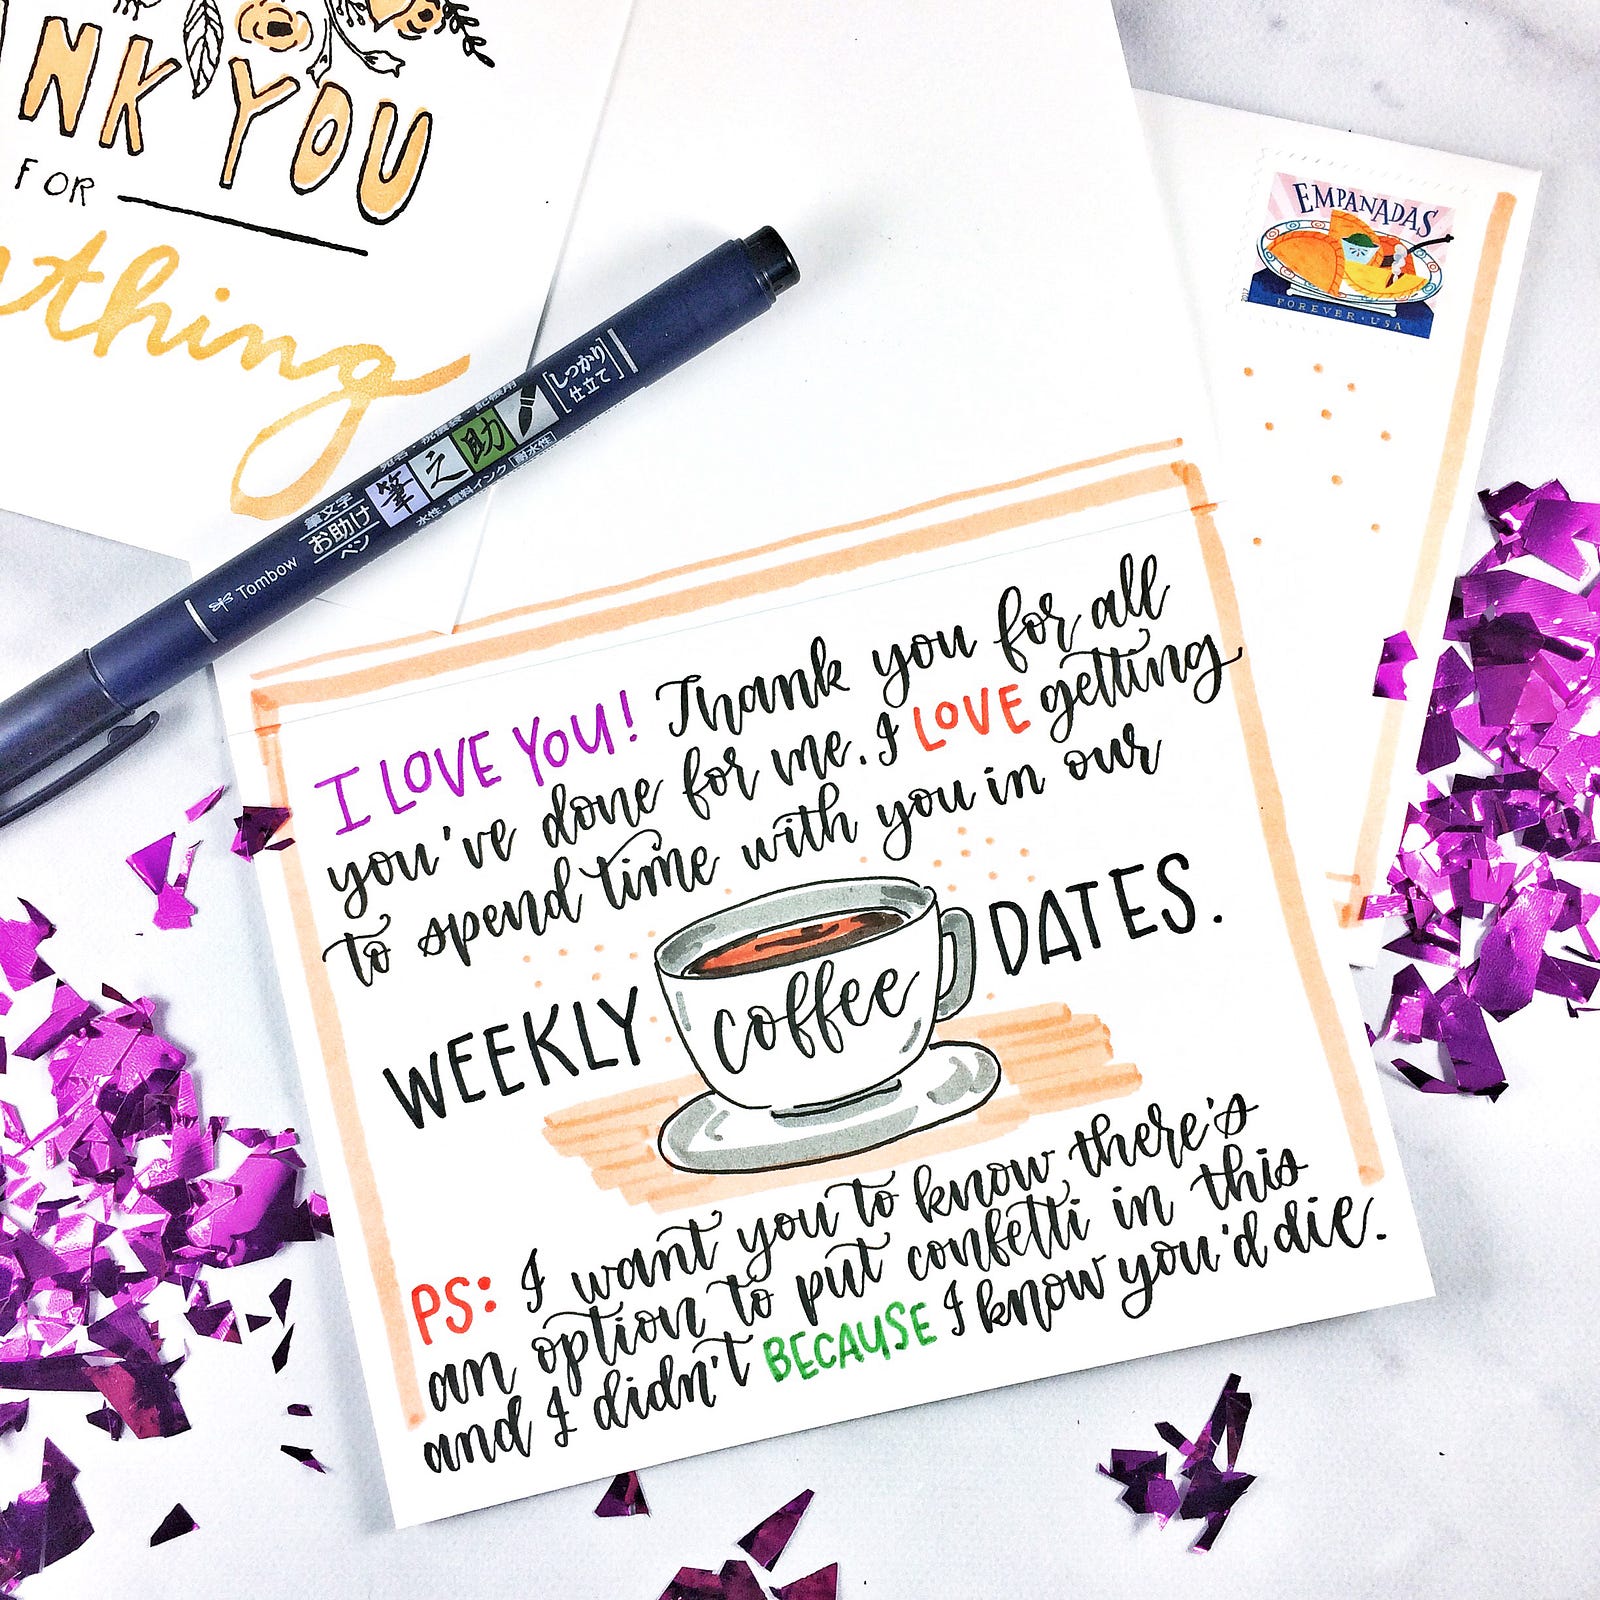 NK YOU
FOR
thing
EMPANADAS
2017
FOREVER • USA
Tombow
筆文字
お助け
ペン
筆之助
水性・顔料インク 耐水性
しっかり
仕立て
I LOVE YOU! Thank you for all
you've done for me. I LOVE getting
to spend time with you in our
WEEKLY coffee DATES.
PS: I want you to know there's
an option to put confetti in this
and I didn't BECAUSE I know you'd die.